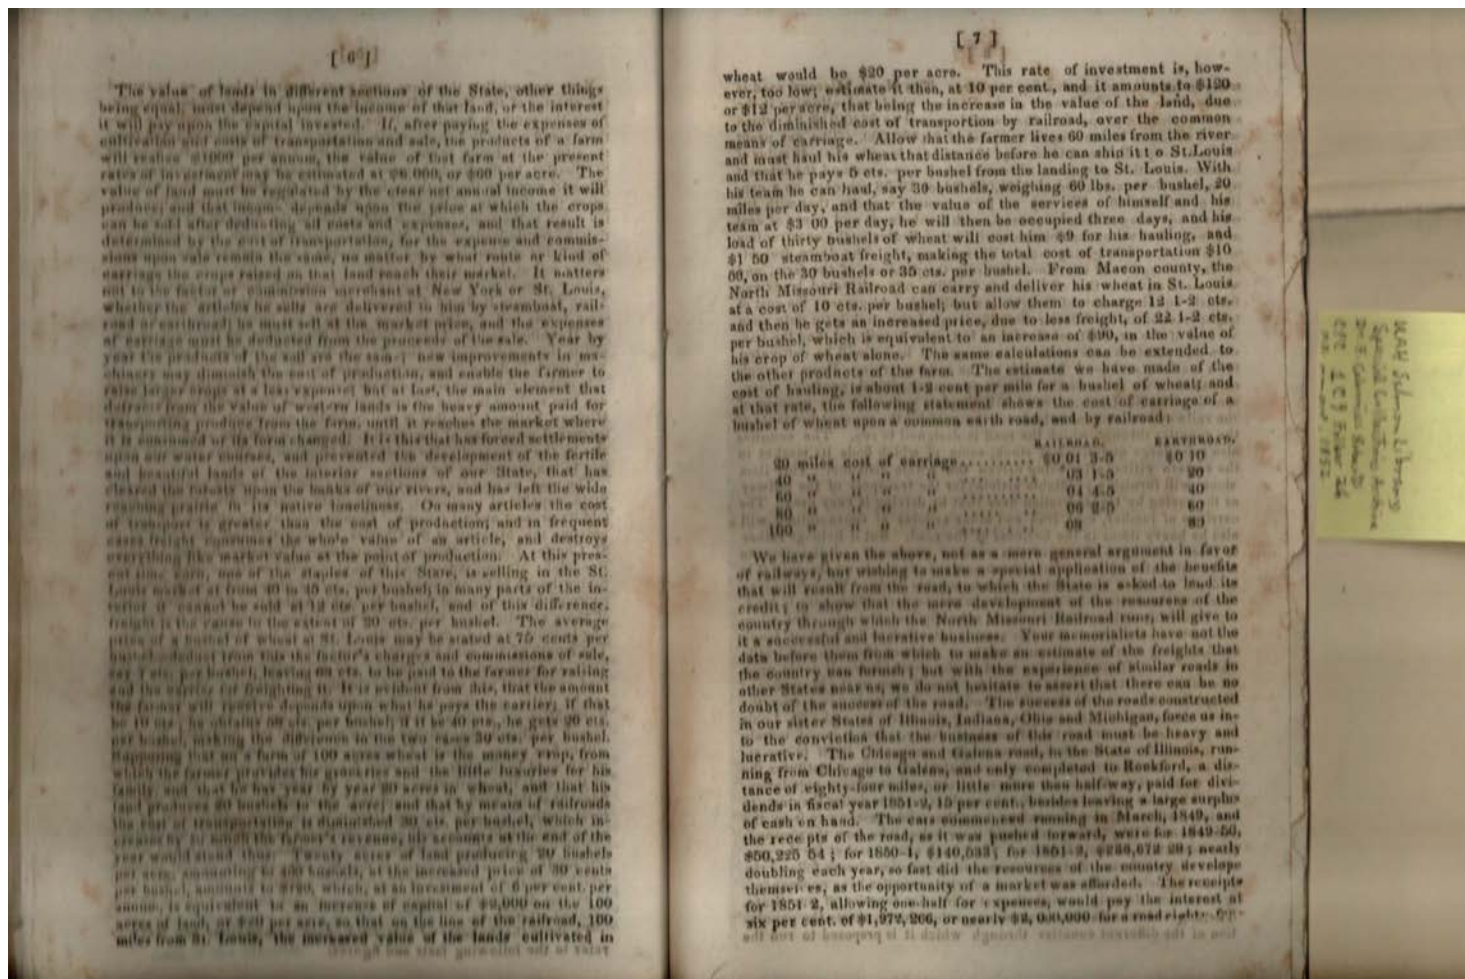 [ 6 ]
The value of lands in different sections of the State, other things
being equal, must depend upon the income of that land, or the interest
it will pay upon the capital invested. If, after paying the expenses of
cultivation and costs of transportation and sale, the products of a farm
will realize $1000 per annum, the value of that farm at the present
rates of investment may be estimated at $6,000, or $60 per acre. The
value of land must be regulated by the clear net annual income it will
produce; and that income depends upon the price at which the crops
can be sold after deducting all costs and expenses, and that result is
determined by the cost of transportation, for the expense and commis-
sions upon sale remain the same, no matter by what route or kind of
carriage the crops raised on that land reach their market. It matters
not to the factor or commission merchant at New York or St. Louis,
whether the articles he sells are delivered to him by steamboat, rail-
road or earthroad; he must sell at the market price, and the expenses
of carriage must be deducted from the proceeds of the sale. Year by
year the products of the soil are the same; new improvements in ma-
chinery may diminish the cost of production, and enable the farmer to
raise larger crops at a less expense; but at last, the main element that
detracts from the value of western lands is the heavy amount paid for
transporting produce from the farm, until it reaches the market where
it is consumed or its form changed. It is this that has forced settlements
upon our water courses, and prevented the development of the fertile
and beautiful lands of the interior sections of our State, that has
cleared the forests upon the banks of our rivers, and has left the wide
reaching prairie in its native loneliness. On many articles the cost
of transport is greater than the cost of production; and in frequent
cases freight consumes the whole value of an article, and destroys
everything like market value at the point of production. At this pres-
ent time corn, one of the staples of this State, is selling in the St.
Louis market at from 40 to 45 cts. per bushel; in many parts of the in-
terior it cannot be sold at 12 cts. per bushel, and of this difference,
freight is the cause to the extent of 20 cts. per bushel. The average
price of a bushel of wheat at St. Louis may be stated at 75 cents per
bushel—deduct from this the factor's charges and commissions of sale,
say 7 cts. per bushel, leaving 68 cts. to be paid to the farmer for raising
and the carrier for freighting it. It is evident from this, that the amount
the farmer will receive depends upon what he pays the carrier; if that
be 10 cts., he obtains 58 cts. per bushel; if it be 40 cts., he gets 20 cts.
per bushel, making the difference in the two cases 30 cts. per bushel.
Supposing that on a farm of 100 acres wheat is the money crop, from
which the farmer provides his groceries and the little luxuries for his
family, and that he has year by year 20 acres in wheat, and that his
land produces 20 bushels to the acre; and that by means of railroads
the cost of transportation is diminished 30 cts. per bushel, which in-
creases by so much the farmer's revenue, his accounts at the end of the
year would stand thus: Twenty acres of land producing 20 bushels
per acre, amounting to 400 bushels, at the increased price of 30 cents
per bushel, amounts to $120, which, at an investment of 6 per cent. per
annum, is equivalent to an increase of capital of $2,000 on the 100
acres of land, or $20 per acre, so that on the line of the railroad, 100
miles from St. Louis, the increased value of the lands cultivated in
[ 7 ]
wheat would be $20 per acre. This rate of investment is, how-
ever, too low; estimate it then, at 10 per cent., and it amounts to $120
or $12 per acre, that being the increase in the value of the land, due
to the diminished cost of transportion by railroad, over the common
means of carriage. Allow that the farmer lives 60 miles from the river
and must haul his wheat that distance before he can ship it t o St.Louis
and that he pays 5 cts. per bushel from the landing to St. Louis. With
his team he can haul, say 30 bushels, weighing 60 lbs. per bushel, 20
miles per day, and that the value of the services of himself and his
team at $3 00 per day, he will then be occupied three days, and his
load of thirty bushels of wheat will cost him $9 for his hauling, and
$1 50 steamboat freight, making the total cost of transportation $10
50, on the 30 bushels or 35 cts. per bushel. From Macon county, the
North Missouri Railroad can carry and deliver his wheat in St. Louis
at a cost of 10 cts. per bushel; but allow them to charge 12 1-2 cts.
and then he gets an increased price, due to less freight, of 22 1-2 cts.
per bushel, which is equivalent to an increase of $90, in the value of
his crop of wheat alone. The same calculations can be extended to
the other products of the farm. The estimate we have made of the
cost of hauling, is about 1-2 cent per mile for a bushel of wheat; and
at that rate, the following statement shows the cost of carriage of a
bushel of wheat upon a common earth road, and by railroad:
RAILROAD. EARTHROAD.
20 miles cost of carriage.......... $0 01 3-5 $0 10
40 " " " " .......... 03 1-5 20
60 " " " " .......... 04 4-5 40
80 " " " " .......... 06 2-5 60
100 " " " " .......... 08 80
We have given the above, not as a mere general argument in favor
of railways, but wishing to make a special application of the benefits
that will result from the road, to which the State is asked to lend its
credit; to show that the mere development of the resources of the
country through which the North Missouri Railroad runs, will give to
it a successful and lucrative business. Your memorialists have not the
data before them from which to make an estimate of the freights that
the country can furnish; but with the experience of similar roads in
other States near us, we do not hesitate to assert that there can be no
doubt of the success of the road. The success of the roads constructed
in our sister States of Illinois, Indiana, Ohio and Michigan, force us in-
to the conviction that the business of this road must be heavy and
lucrative. The Chicago and Galena road, in the State of Illinois, run-
ning from Chicago to Galena, and only completed to Rockford, a dis-
tance of eighty-four miles, or little more than half-way, paid for divi-
dends in fiscal year 1851-2, 15 per cent., besides leaving a large surplus
of cash on hand. The cars commenced running in March, 1849, and
the rece pts of the road, as it was pushed forward, were for 1849-50,
$50,225 54; for 1850-1, $140,533; for 1851-2, $236,672 28; nearly
doubling each year, so fast did the resources of the country develope
themselves, as the opportunity of a market was afforded. The receipts
for 1851-2, allowing one-half for expenses, would pay the interest at
six per cent. of $1,972,266, or nearly $2,000,000 for a road eighty-
UAH Salmon Library
Special Collections Archive
Dr. F. Calaminus Roberts